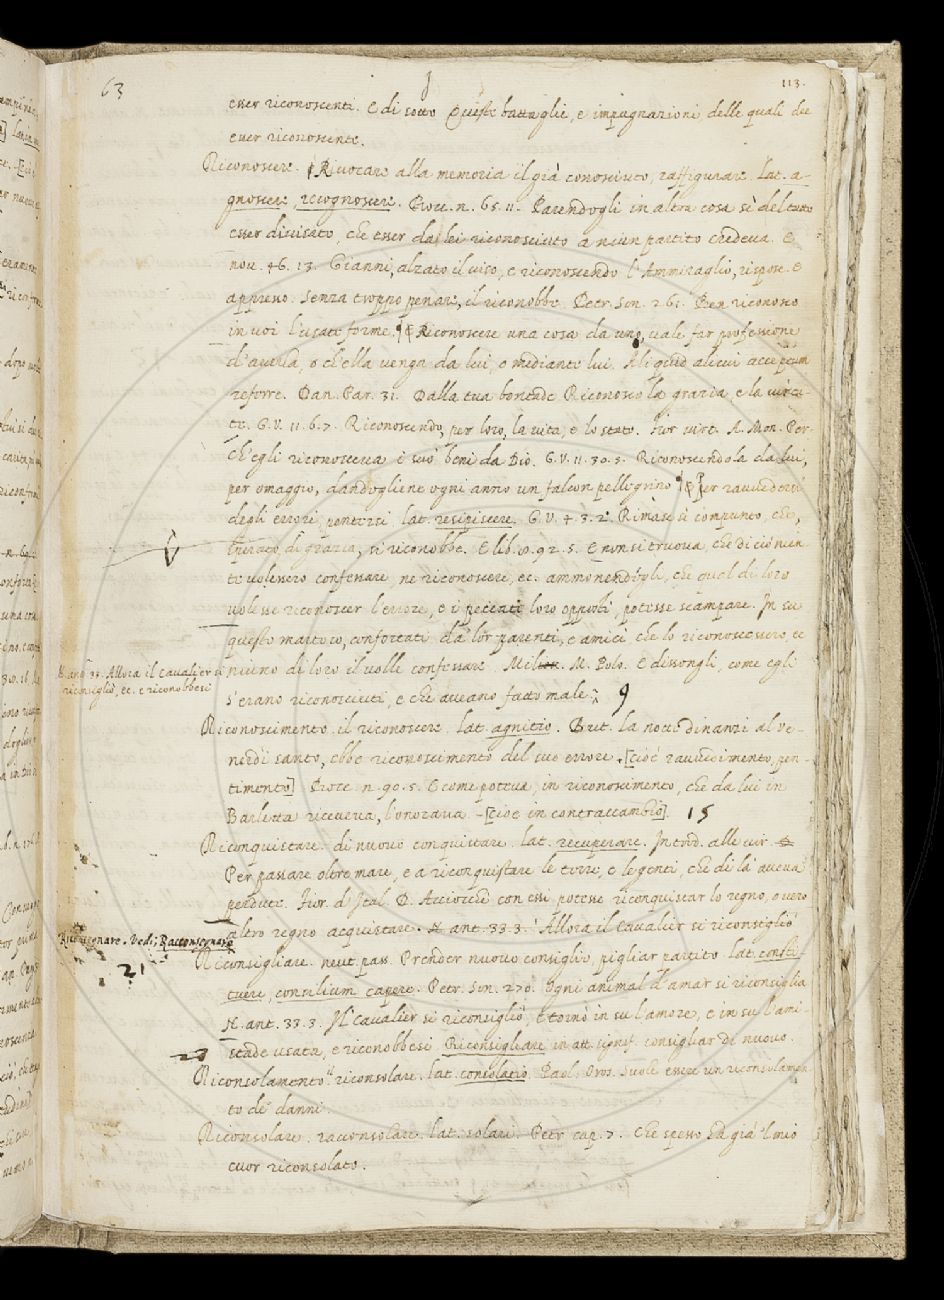 63
113.
esser riconoscenti. E di sotto Queste battaglie, e impugnazioni, delle quali dee
esser riconoscente.
Riconoscere. Rivocare alla memoria il già conosciuto, raffigurare. Lat. a-
gnoscere, recognoscere. Bocc. n. 65. 11. Parendogli in altra cosa sì del tutto
esser divisato, che esser da lei riconosciuto a niun partito credeva. E
nov. 46. 13. Gianni, alzato il viso, e riconoscendo l'Ammiraglio, rispose. E
appresso. Senza troppo penare, il riconobbe. Petr. Son. 261. Ben riconosco
in voi l'usate forme. Riconoscere una cosa da uno, vale far professione
d'averla, o ch'ella venga da lui, o mediante lui. Aliquid alicui acceptum
referre. Dan. Par. 31. Dalla tua bontade Riconosco la grazia, e la virtu-
te. G. V. 11. 6. 7. Riconoscendo, per loro, la vita, e lo stato. Fior. virt. A. Mon. Per-
ch'egli riconosceva i suo' beni da Dio. G. V. 11. 30. 5. Riconoscendola da lui,
per omaggio, dandogliene ogni anno un falcon pellegrino. Per ravvedersi
degli errori, pentirsi, lat. resipiscere. G. V. 4. 3. 2. Rimase sì compunto, che,
spirato di grazia, si riconobbe. E lib. 8. 92. 5. E non si truova, che di ciò nien-
te volessero confessare, ne riconoscere, ec. ammonendogli, che qual di loro
volesse riconoscer l'errore, e i peccati loro opposti, potesse scampare. In su
questo martoro, confortati da lor parenti, e amici che lo riconoscessero, ec
niuno di loro il volle confessare. M. Polo. E dissongli, come egli
s'erano riconosciuti, e che aveano fatto male. 9
N. ant. 33. Allora il cavalier si
riconsigliò, ec. e riconobbesi
Riconoscimento. il riconoscere. lat. agnitio. But. la notte dinanzi al ve-
nerdì santo, ebbe riconoscimento del suo errore. [cioè ravvedimento, pen-
timento] Bocc. n. 90. 5. E come poteva, in riconoscimento, che da lui in
Barletta riceveva, l'onorava. [cioè in contraccambio]. 15
Riconquistare. di nuovo conquistare. lat. recuperare. Introd. alle vir.
Per passare oltre mare, e a riconquistare le terre, e le genti, che di là aveva
perdute. Fior. d'Ital. D. Acciocchè con essi potesse riconquistar lo regno, overo
altro regno acquistare. N. ant. 33. 3. Allora il cavalier si riconsigliò
Riconsegnare. Vedi, Racconsegnare
21
Riconsigliare. neut. pass. Prender nuovo consiglio, pigliar partito. lat. consti-
tuere, consilium capere. Petr. Son. 270. Ogni animal d'amar si riconsiglia
N. ant. 33. 3. Il cavalier si riconsigliò, E tornò in su l'amore, e in su l'ami-
stade usata, e riconobbesi. Riconsigliare in att. signif. consigliar di nuovo.
Riconsolamento. il riconsolare. lat. consolatio. Paol. Oros. Suole essere un riconsolamen-
to de' danni.
Riconsolare. racconsolare. lat. solari. Petr. cap. 7. Che spesso ha già 'l mio
cuor riconsolato.